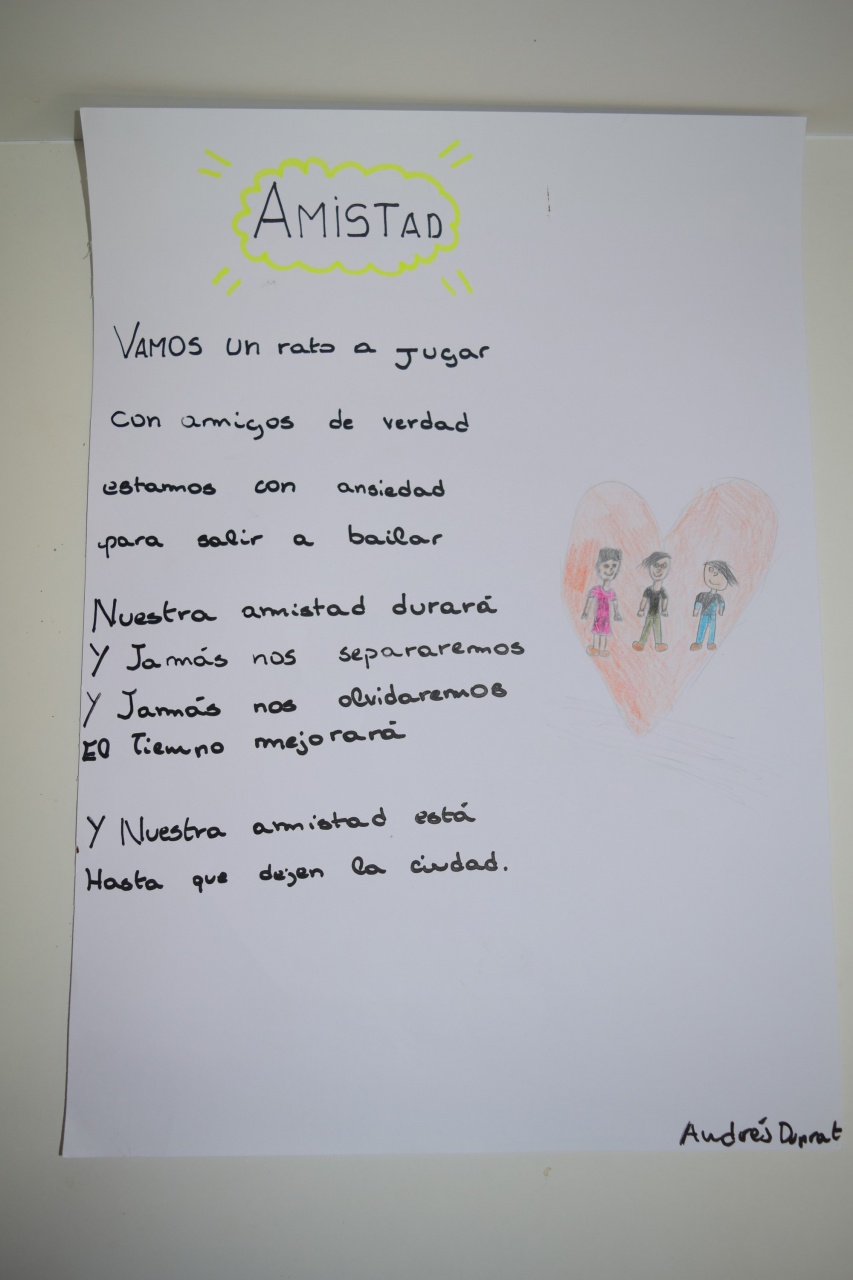 AMISTAD
VAMOS un rato a Jugar
con amigos de verdad
estamos con ansiedad
para salir a bailar
Nuestra amistad durará
Y Jamás nos separaremos
Y Jamás nos olvidaremos
El Tiempo mejorará
Y Nuestra amistad está
Hasta que dejen la ciudad.
Andrés Duprat